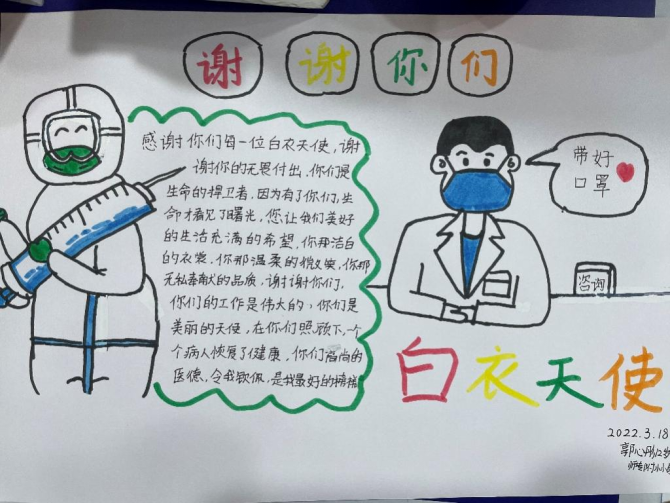 谢谢你们
感谢你们每一位白衣天使，谢
谢你的无畏付出，你们是
生命的捍卫者，因为有了你们，生
命才看见了曙光，您让我们美好
的生活充满的希望，你那洁白
的衣裳，你那温柔的微笑，你那
无私奉献的品质，谢谢你们，
你们的工作是伟大的，你们是
美丽的天使，在你们照顾下，一个
个病人恢复了健康，你们高尚的
医德，令我钦佩，是我最好的榜样
带好
口罩
咨询
白衣天使
2022.3.18
郭心刚12岁